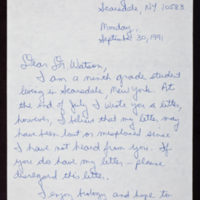 Scarsdale, NY 10583
Monday,
September 30, 1991
Dear Dr Watson,
I am a ninth grade student
living in Scarsdale, New York. At
the end of July I wrote you a letter,
however, I believe that my letter may
have been lost or misplaced since
I have not heard from you. If
you do have my letter - please
disregard this letter.
I enjoy biology and hope to